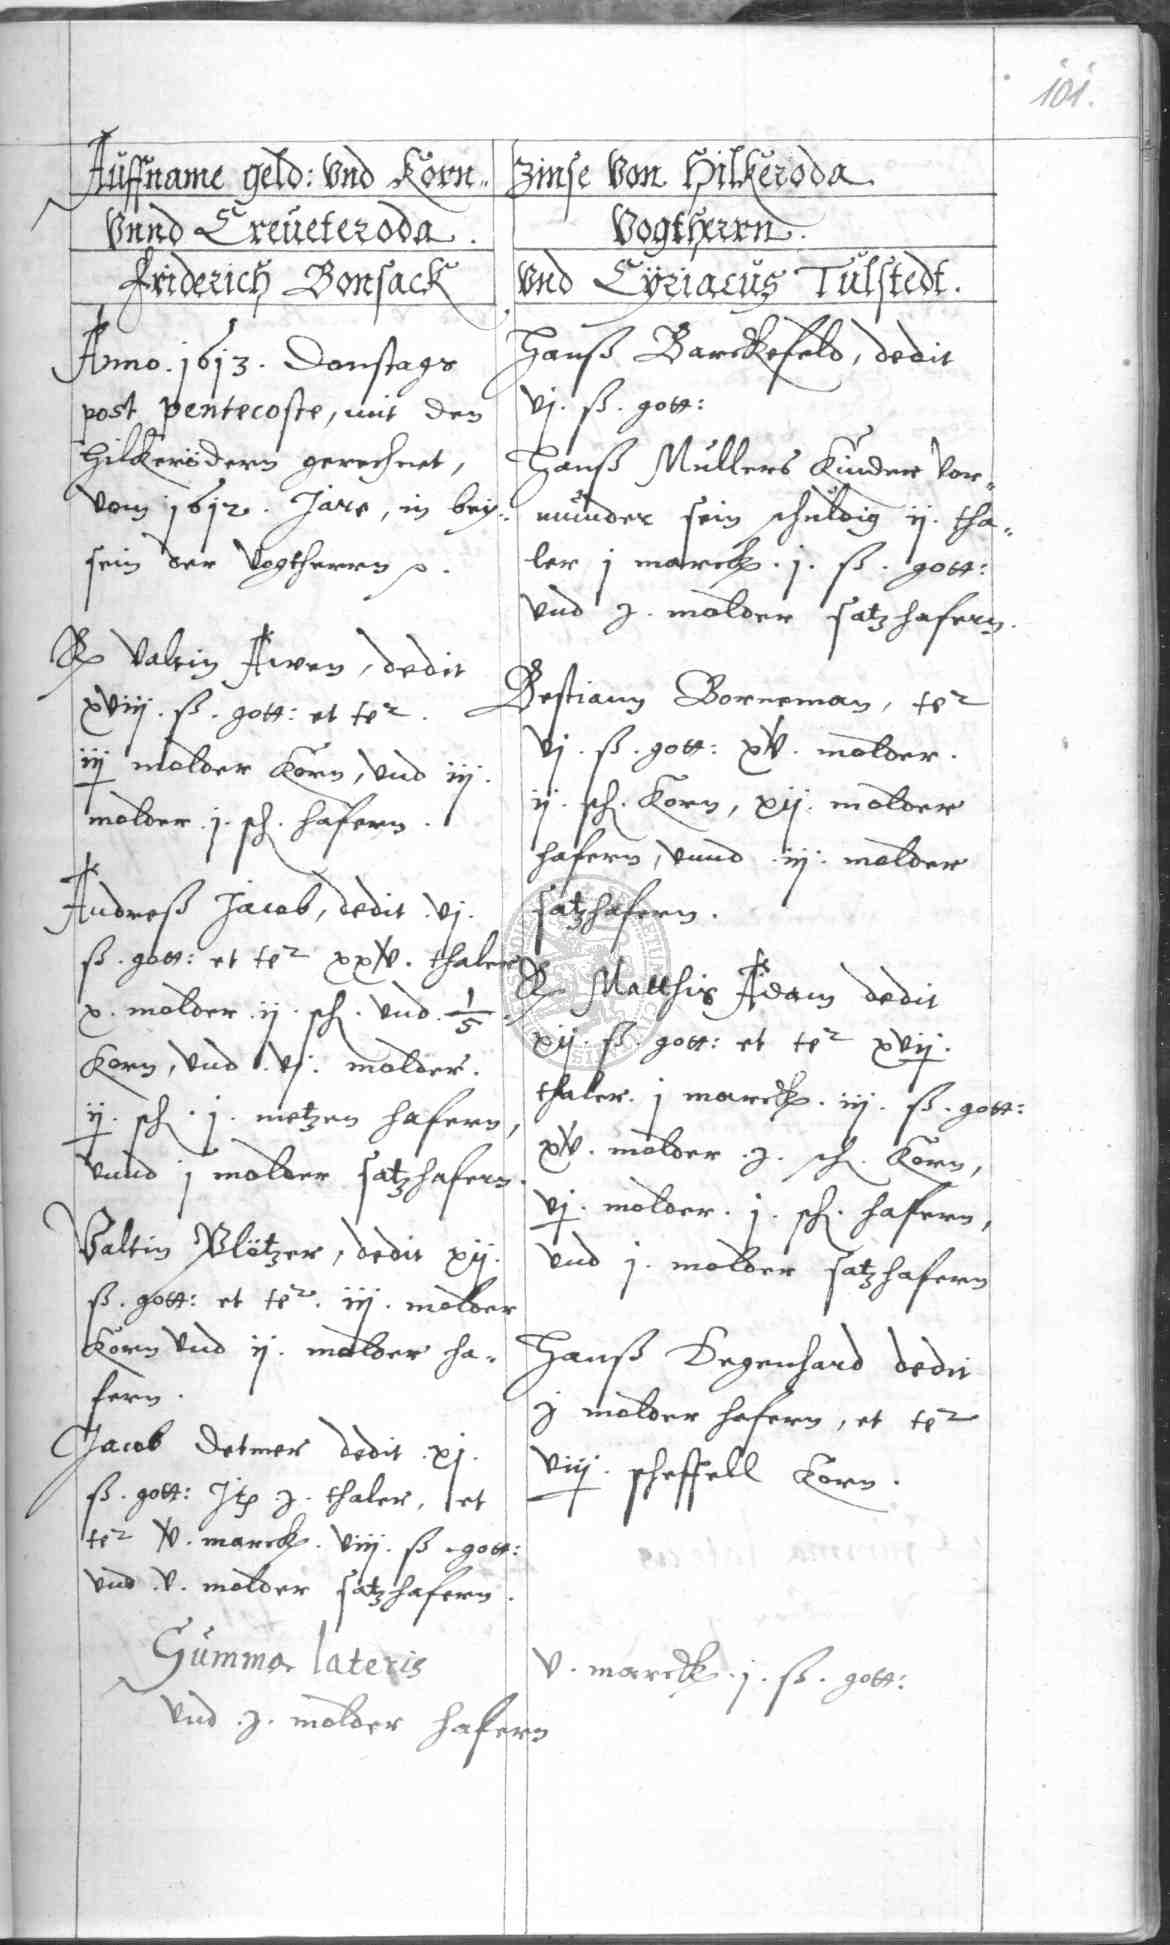 101.
Auffname geld: vnd Korn= zinse von Hilkeroda
vnnd Creueteroda. Vogtherrn.
Friderich Bonsack vnd Cÿriacus Tulstedt.
Anno. 1613. Donstags
post pentecoste, mit den
Hilkerödern gerechnet,
vom 1612. Jare, in bey=
sein der Vogtherrn p.
Valtin Awen, dedit
xviij. ß. gott: et te2.
iij molder Korn, vnd iij.
molder. j. sch. hafern.
Andreß Jacob, dedit. vj.
ß. gott: et te2 xxv. thaler
x. molder. ij. sch. vnd. 1/5.
Korn, vnd. vj. molder.
ij. sch. j. metzen hafern,
vnnd j molder satzhafern.
Valtin Plötzer, dedit xij.
ß. gott: et te2. iij. molder
Korn vnd ij. molder ha=
fern.
Jacob Detmer dedit. xj.
ß. gott: Jtp. j. thaler, et
te2 v. marck. viij. ß. gott:
vnd. v. molder satzhafern.
Summa lateris
vnd. j. molder hafern
Hanß Barckefeld, dedit
vj. ß. gott:
Hanß Müllers Kinder Vor=
münder sein schuldig ij. tha=
ler j marck. j. ß. gott:
vnd j. molder satzhafern.
Bestiann Borneman, te2
vj. ß. gott: xv. molder.
ij. sch. Korn, xij. molder
hafern, vnnd. iij. molder
satzhafern.
Matthis Adam dedit
xij. ß. gott: et te2 xvij.
thaler. j marck. iij. ß. gott:
xv. molder. j. sch. Korn,
vj. molder. j. sch. hafern,
vnd j. molder satzhafern
Hanß Degenhard dedit
j molder hafern, et te2
viij. scheffell Korn.
v. marck. j. ß. gott: